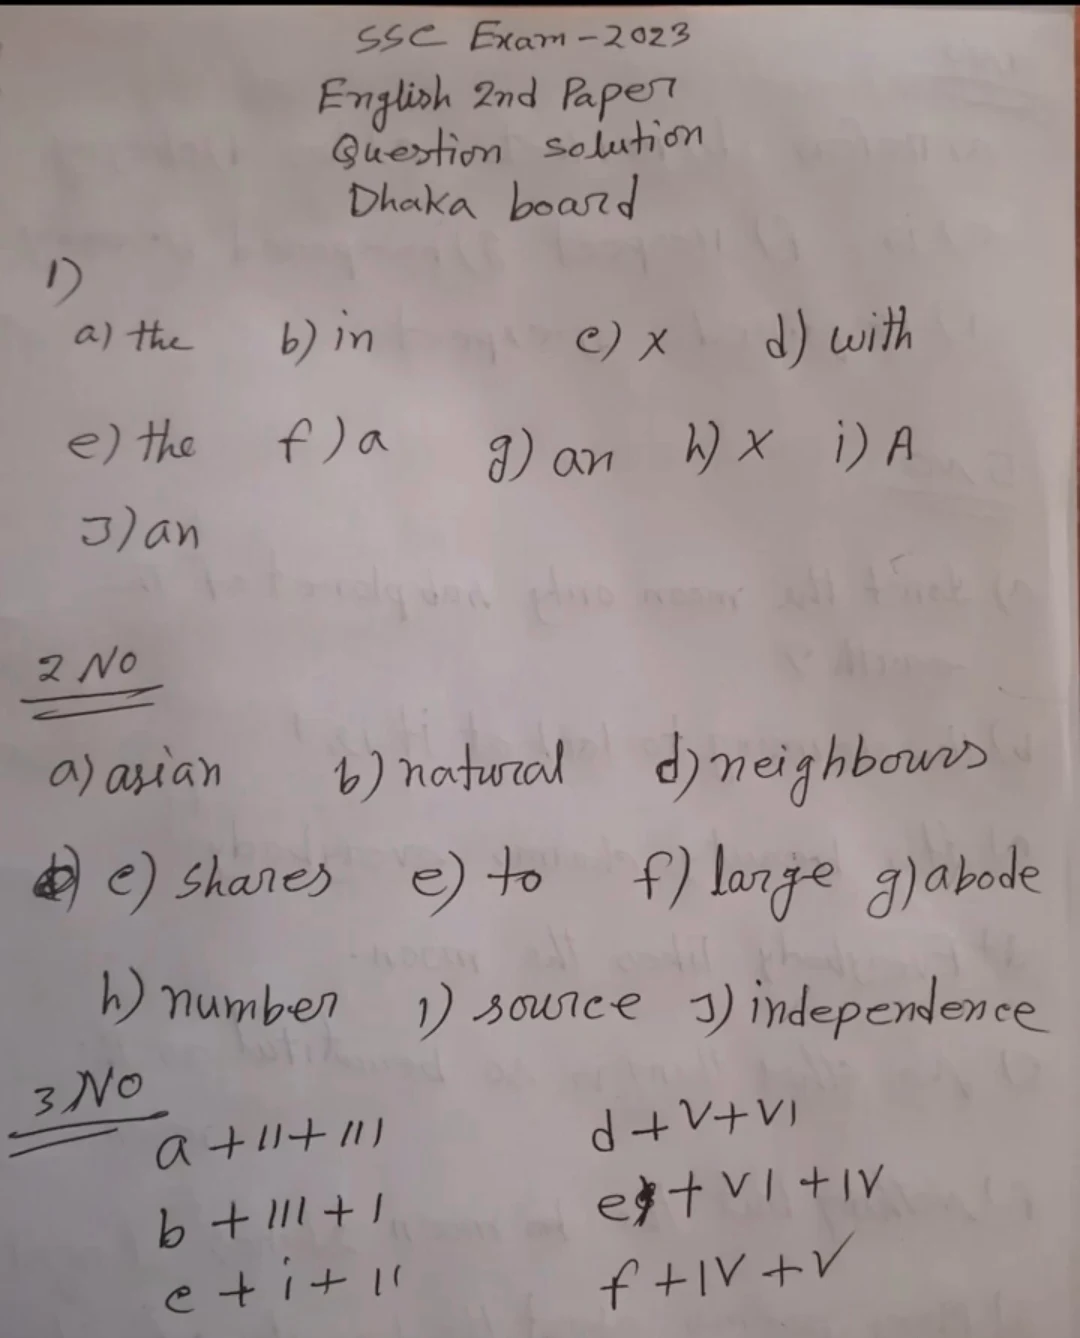 SSC Exam - 2023
English 2nd Paper
Question solution
Dhaka board
1)
a) the b) in c) x d) with
e) the f) a g) an h) x i) A
J) an
2 NO
a) asian b) natural d) neighbours
c) shares e) to f) large g) abode
h) number 1) source J) independence
3 NO
a + 11 + 111 d + V + VI
b + 111 + 1 e + VI + IV
c + i + 11 f + IV + V